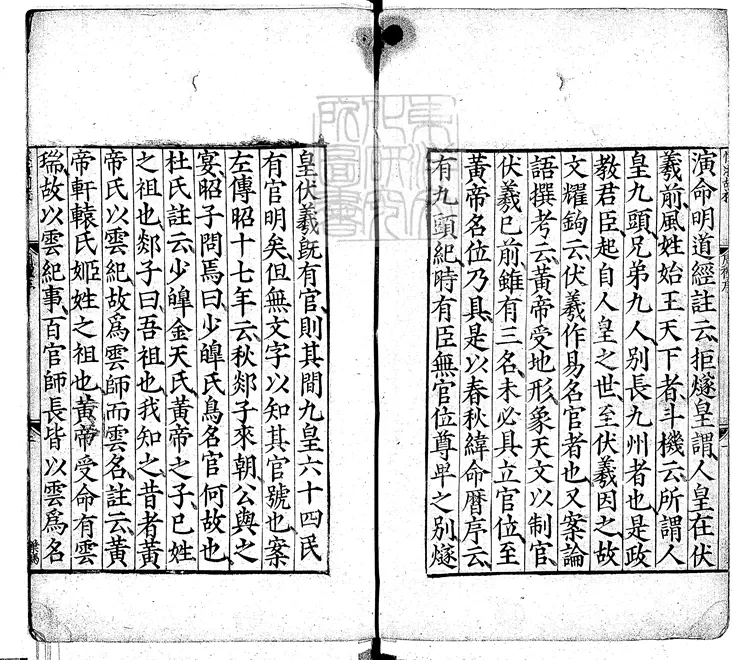 演命明道經註云拒燧皇謂人皇在伏
羲前風姓始王天下者斗機云所謂人
皇九頭兄弟九人別長九州者也是政
教君臣起自人皇之世至伏羲因之故
文耀鉤云伏羲作易名官者也又案論
語撰考云黃帝受地形象天文以制官
伏羲已前雖有三名未必具立官位至
黃帝名位乃具是以春秋緯命曆序云
有九頭紀時有臣無官位尊卑之別燧
皇伏羲既有官則其間九皇六十四民
有官明矣但無文字以知其官號也案
左傳昭十七年云秋郯子來朝公與之
宴昭子問焉曰少皞氏鳥名官何故也
杜氏註云少皞金天氏黃帝之子己姓
之祖也郯子曰吾祖也我知之昔者黃
帝氏以雲紀故爲雲師而雲名註云黃
帝軒轅氏姬姓之祖也黃帝受命有雲
瑞故以雲紀事百官師長皆以雲爲名